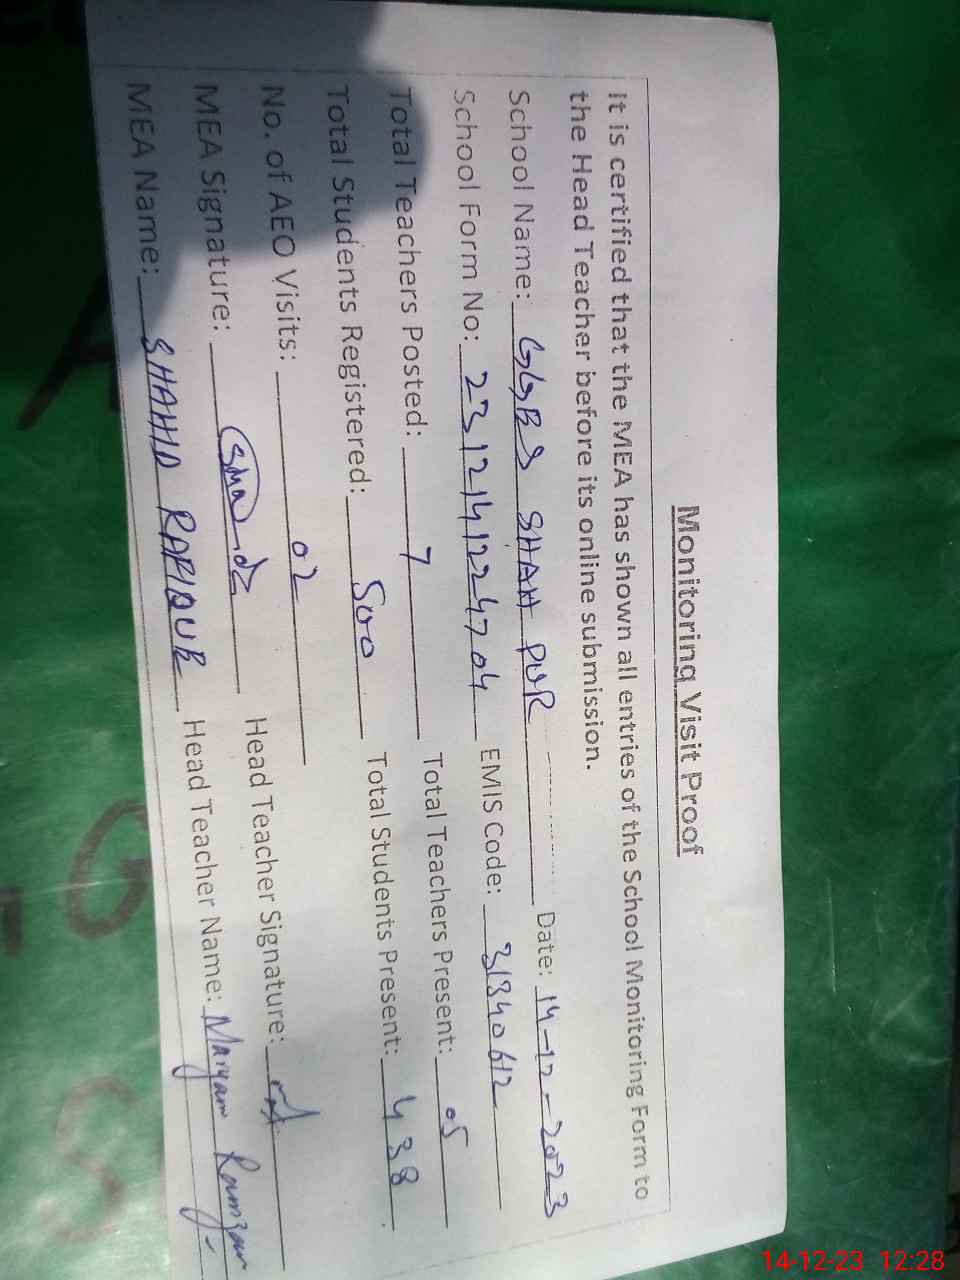 Monitoring Visit Proof
It is certified that the MEA has shown all entries of the School Monitoring Form to
the Head Teacher before its online submission.
School Name: GGES SHAH PUR Date: 14-12-2023
School Form No: 2312141224704 EMIS Code: 31340612
Total Teachers Posted: 7 Total Teachers Present: 05
Total Students Registered: 500 Total Students Present: 438
No. of AEO Visits: 02
MEA Signature: Head Teacher Signature:
MEA Name: SHAHID RAFIQUE Head Teacher Name: Maryam Ramzan
G
S
14-12-23 12:28